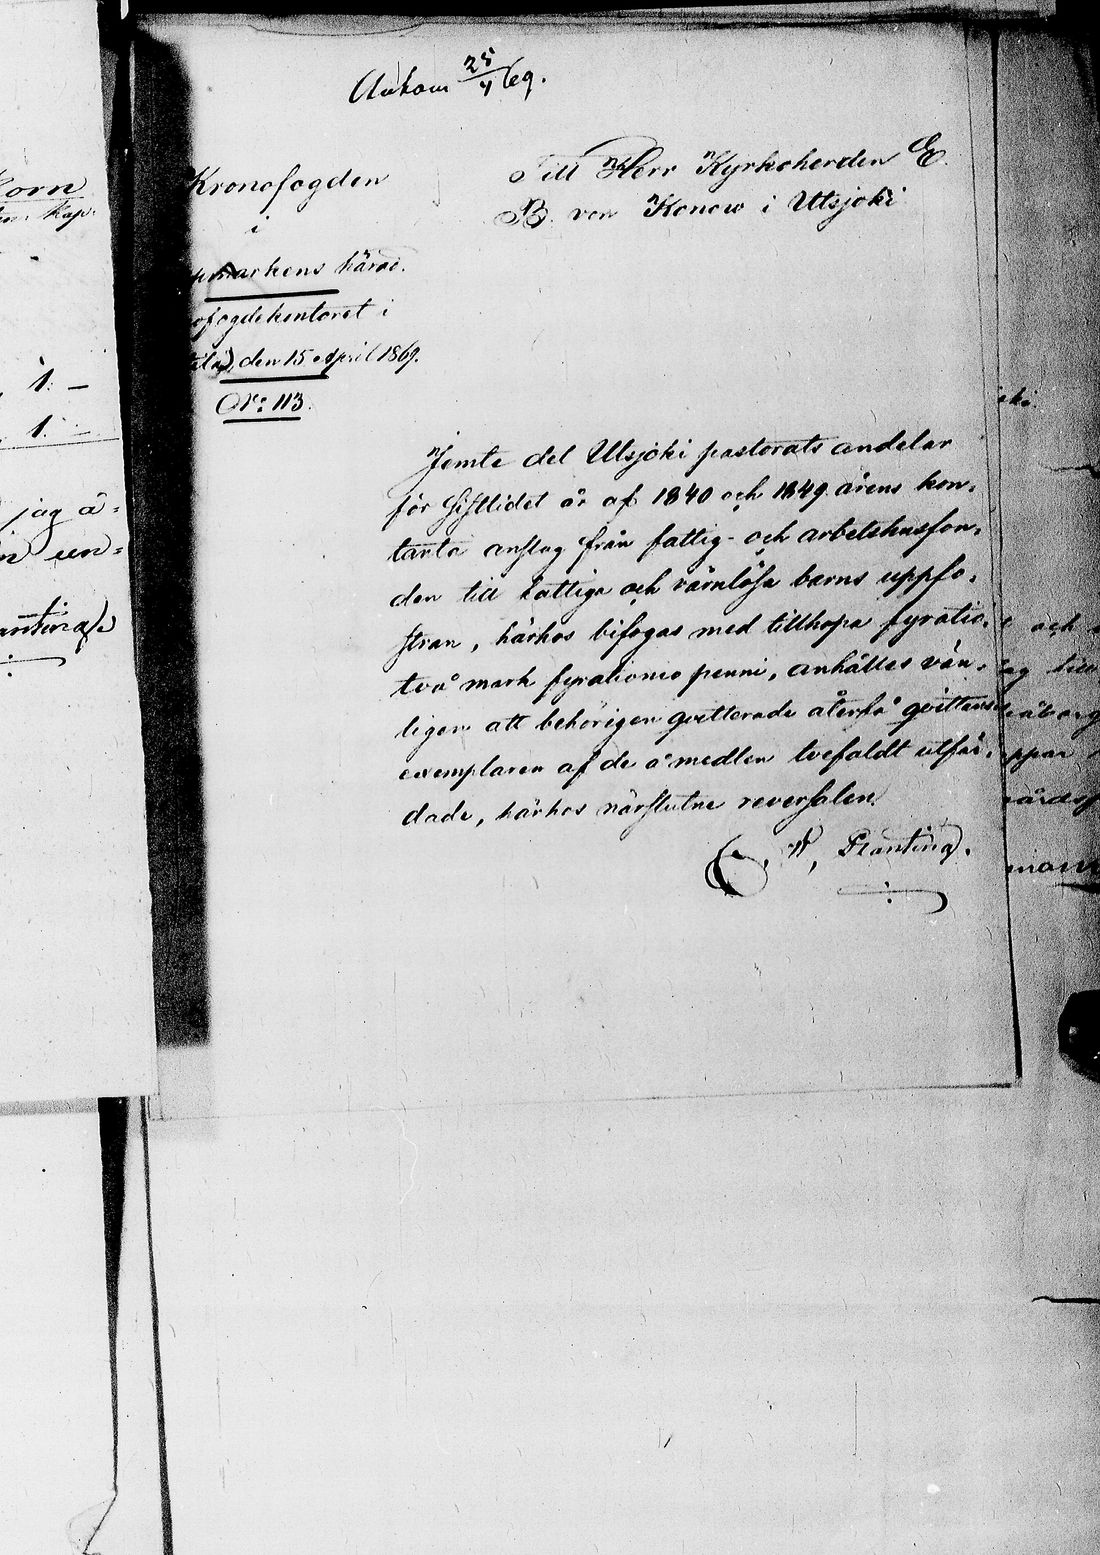 Ankom 25/4 69.
Kronofogden
i
pmarkens härad.
ofogdekontoret i
den 15 April 1869.
No: 113.
Till Herr Kyrkoherden E.
B. von Konow i Utsjoki
Jemte det Utsjoki pastorats andelar
för sistlidet år af 1840 och 1849 årens kon-
tanta anslag från fattig- och arbetshusfon-
den till fattiga och värnlösa barns uppfo-
stran, härhos bifogas med tillhopa fyratio-
två mark fyrationio penni, anhålles vän-
ligen att behörigen qvitterade återfå qvittens
exemplaren af de å medlen tvefaldt utfär-
dade, härhos närslutne reversalen.
C. W. Planting.
Korn
kap.
1. —
1. —
jag å-
in un-
anting
oki.
och
till
ppar